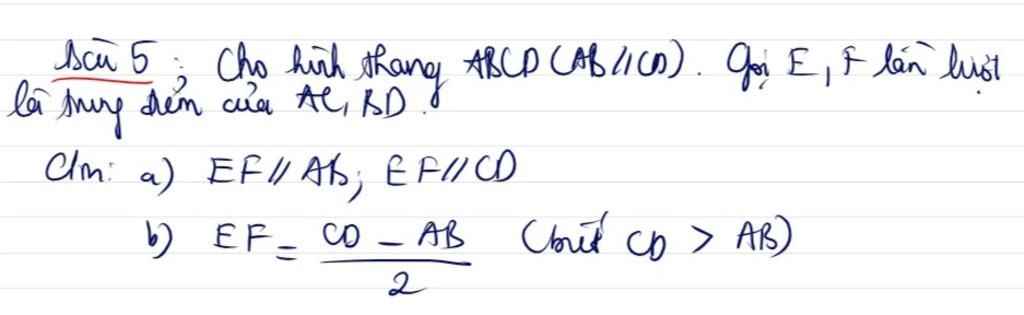 Bài 5 : Cho hình thang ABCD (AB//CD). Gọi E, F lần lượt
là trung điểm của AC, BD.
Cm: a) EF // AB; EF // CD
b) EF = \frac{CD - AB}{2} (biết CD > AB)